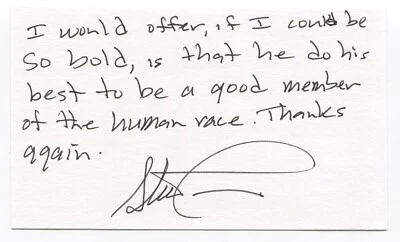 I would offer, if I could be
so bold, is that he do his
best to be a good member
of the human race. Thanks
again.